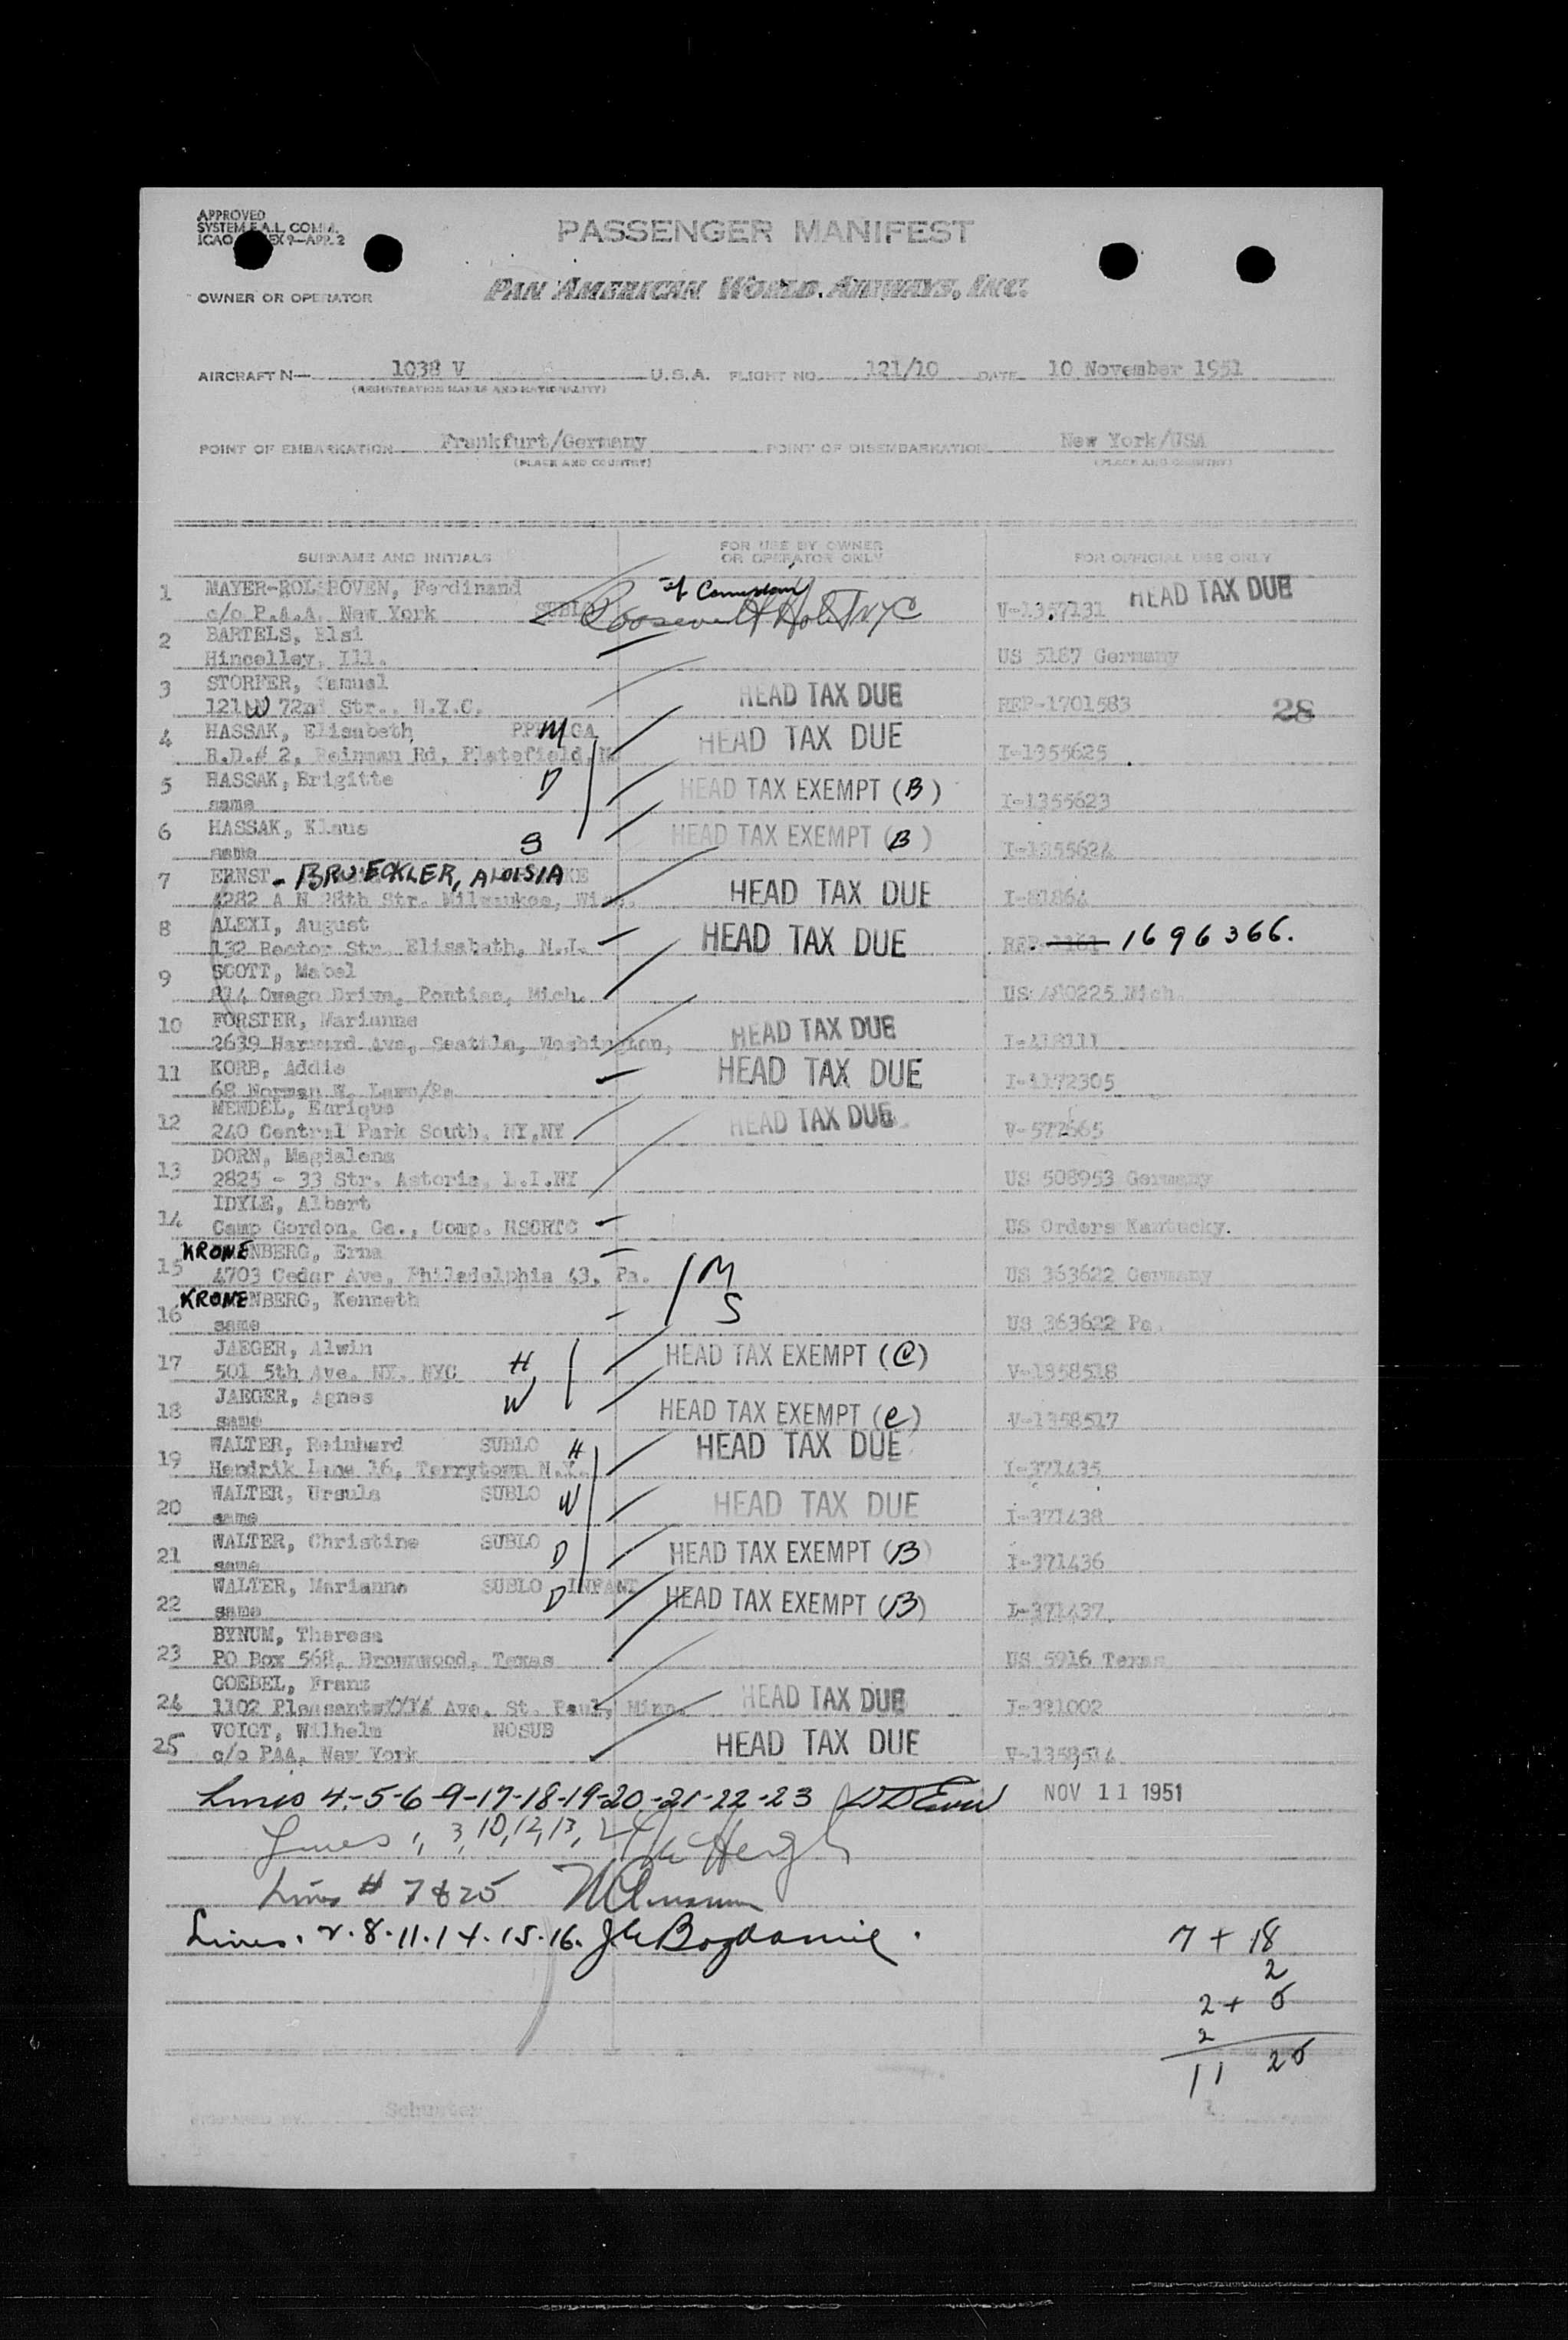 APPROVED
SYSTEM E.A.L. COMM.
ICAO EX 9—APP. 2
PASSENGER MANIFEST
OWNER OR OPERATOR PAN AMERICAN WORLD AIRWAYS, INC.
AIRCRAFT N— 1038 V U.S.A. FLIGHT NO. 121/10 DATE 10 November 1951
(REGISTRATION MARKS AND NATIONALITY)
POINT OF EMBARKATION Frankfurt/Germany POINT OF DISEMBARKATION New York/USA
(PLACE AND COUNTRY) (PLACE AND COUNTRY)
SURNAME AND INITIALS FOR USE BY OWNER OR OPERATOR ONLY FOR OFFICIAL USE ONLY
1 MAYER-ROLSHOVEN, Ferdinand HEAD TAX DUE
c/o P.A.A. New York SUBLO Roosevelt Hotel NYC V-1357131
2 BARTELS, Elsi
Hincelley, Ill. US 5187 Germany
3 STORFER, Samuel HEAD TAX DUE
121 W 72nd Str.. N.Y.C. REP-1701583 28
4 HASSAK, Elisabeth M HEAD TAX DUE
R.D.# 2, Rd, I-1355625
5 HASSAK, Brigitte D HEAD TAX EXEMPT (B)
same I-1355623
6 HASSAK, Klaus S HEAD TAX EXEMPT (B)
same I-1355624
7 ERNST - BRUECKLER, ALOISIA HEAD TAX DUE
4282 A N 28th Str. Milwaukee, I-81864
8 ALEXI, August HEAD TAX DUE
132 Rector Str. Elisabeth, N.J. REP- 1696366.
9 SCOTT, Mabel
814 Owego Drive, Pontiac, Mich. US 480225 Mich.
10 FORSTER, Marianne HEAD TAX DUE
2639 Harvard Ave, Seattle, Washington, I-418111
11 KORB, Addie HEAD TAX DUE
68 Norman I-1172305
12 MENDEL, Enrique HEAD TAX DUE
240 Central Park South, NY,NY V-572665
13 DORN, Magdalena
2825 - 33 Str. Astoria, L.I.NY US 508953 Germany
14 IDYLE, Albert
Camp Gordon, Ga., Comp. RSCRTC US Orders Kentucky.
15 KRONENBERG, Erna M
4703 Cedar Ave, Philadelphia 43, Pa. US 363622 Germany
16 KRONENBERG, Kenneth S
same US 363622 Pa.
17 JAEGER, Alwin H HEAD TAX EXEMPT (C)
501 5th Ave. NY, NYC V-1358518
18 JAEGER, Agnes W HEAD TAX EXEMPT (C)
same V-1358517
19 WALTER, Reinhard SUBLO H HEAD TAX DUE
Hendrik Lane 16, Terrytown N.Y. I-371435
20 WALTER, Ursula SUBLO W HEAD TAX DUE
same I-371438
21 WALTER, Christine SUBLO D HEAD TAX EXEMPT (B)
same I-371436
22 WALTER, Marianne SUBLO INFANT D HEAD TAX EXEMPT (B)
same I-371437
23 BYNUM, Theresa
PO Box 568, Brownwood, Texas US 5916 Texas
24 GOEBEL, Franz HEAD TAX DUE
1102 Ave. St. Paul, Minn. I-321002
25 VOIGT, Wilhelm NOSUB HEAD TAX DUE
c/o PAA, New York V-1358514
Lines 4-5-6-9-17-18-19-20-21-22-23 NOV 11 1951
Lines 1, 3, 10, 12, 13, 24
Lines # 7 & 25
Lines. 2. 8. 11. 14. 15. 16.
7 + 18
2
2 + 5
2
11 25
PREPARED BY Schuster 1 1